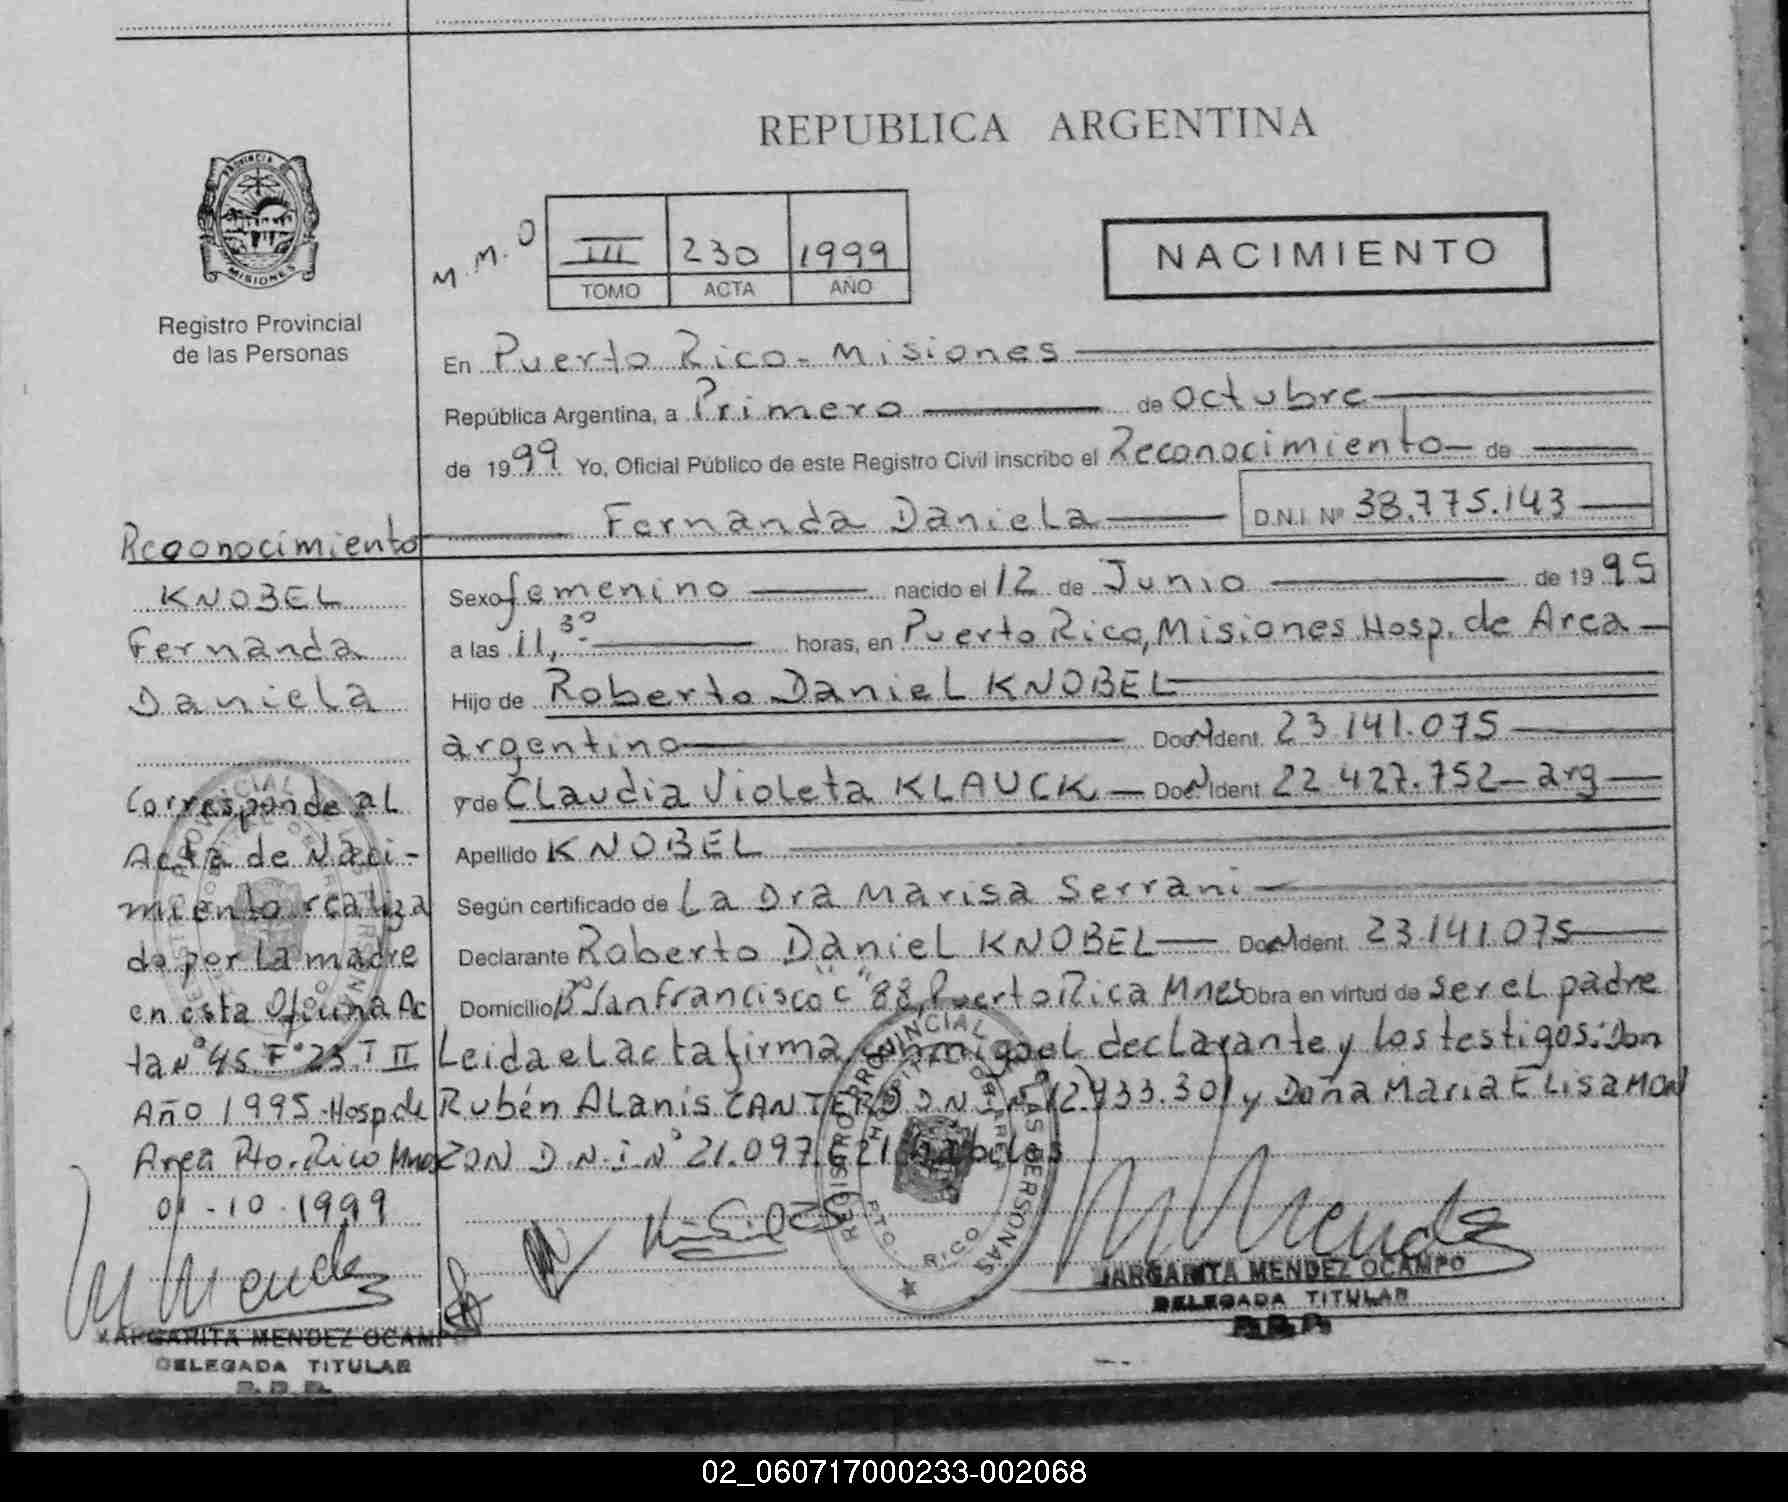 REPUBLICA ARGENTINA
PROVINCIA
MISIONES
Registro Provincial
de las Personas
M.M.O
III 230 1999
TOMO ACTA AÑO
NACIMIENTO
En Puerto Rico - Misiones
República Argentina, a Primero de octubre
de 1999 Yo, Oficial Público de este Registro Civil inscribo el Reconocimiento de
Fernanda Daniela D.N.I. Nº 38.775.143
Sexo femenino nacido el 12 de Junio de 1995
a las 11,30 horas, en Puerto Rico, Misiones Hosp. de Area
Hijo de Roberto Daniel KNOBEL
argentino Doc. Ident. 23.141.075
y de Claudia Violeta KLAUCK Doc. Ident. 22.427.752 - arg
Apellido KNOBEL
Según certificado de La Dra Marisa Serrani
Declarante Roberto Daniel KNOBEL Doc. Ident. 23.141.075
Domicilio Bº San Francisco "C" 88, Puerto Rico Mnes Obra en virtud de ser el padre
Leida el acta firma conmigo el declarante y los testigos: Don
Rubén Alanis CANTERO D.N.I. Nº 12.933.301 y Doña Maria Elisa MON
ZON D.N.I. Nº 21.097.621 habiles
Reconocimiento
KNOBEL
Fernanda
Daniela
Corresponde al
Acta de Naci-
miento realiza
do por la madre
en esta Oficina Ac
ta Nº 45 Fº 23 T II
Año 1995 - Hosp. de
Area Pto. Rico Mnes
01-10-1999
MARGARITA MENDEZ OCAMPO
DELEGADA TITULAR
REGISTRO PROVINCIAL DE LAS PERSONAS
HOSPITAL DE AREA
PTO. RICO
MARGARITA MENDEZ OCAMPO
DELEGADA TITULAR
R.P.P.
02_060717000233-002068